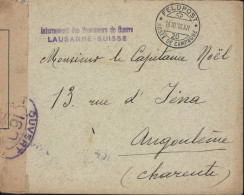 Internement des Prisonniers de Guerre
LAUSANNE-SUISSE
FELDPOST
POSTE DE CAMPAGNE
Monsieur le Capitaine Noël
13 rue d'Iéna
Angoulême
(Charente)
OUVERT